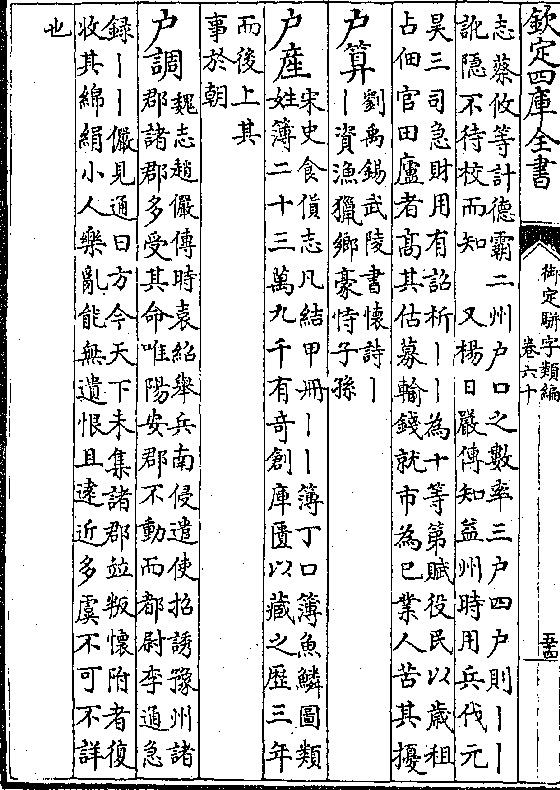 欽定四庫全書
御定駢字類編
卷六十
五十四
志蔡攸等計德霸二州户口之數率三户四户則丨丨
訛隱不待校而知 又楊日嚴傳知益州時用兵伐元
昊三司急財用有詔析丨丨為十等第賦役民以歳租
占佃官田廬者髙其估募輸錢就市為已業人苦其擾
户算
劉禹錫武陵書懷詩丨
丨資漁獵鄉豪恃子孫
户産
宋史食貨志凡結甲冊丨丨簿丁口簿魚鱗圖類
姓簿二十三萬九千有竒創庫匱以藏之歴三年
而後上其
事於朝
户調
魏志趙儼傳時袁紹舉兵南侵遣使招誘豫州諸
郡諸郡多受其命唯陽安郡不動而都尉李通急
録丨丨儼見通曰方今天下未集諸郡竝叛懷附者復
收其綿絹小人樂亂能無遺恨且逺近多虞不可不詳
也